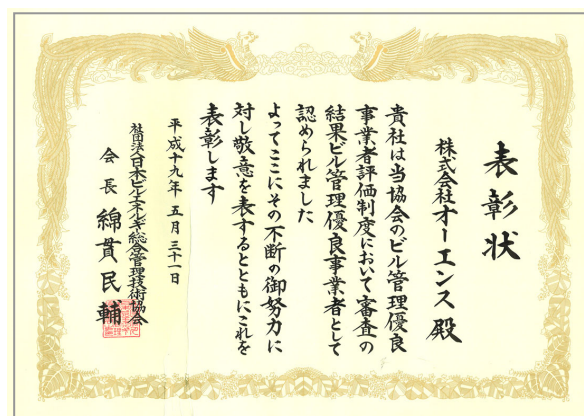 表彰状
株式会社オーエンス殿
貴社は当協会のビル管理優良
事業者評価制度において審査の
結果ビル管理優良事業者として
認められました
よってここにその不断の御努力に
対し敬意を表するとともにこれを
表彰します
平成十九年五月三十一日
社団法人日本ビルエネルギー総合管理技術協会
会長 綿貫民輔